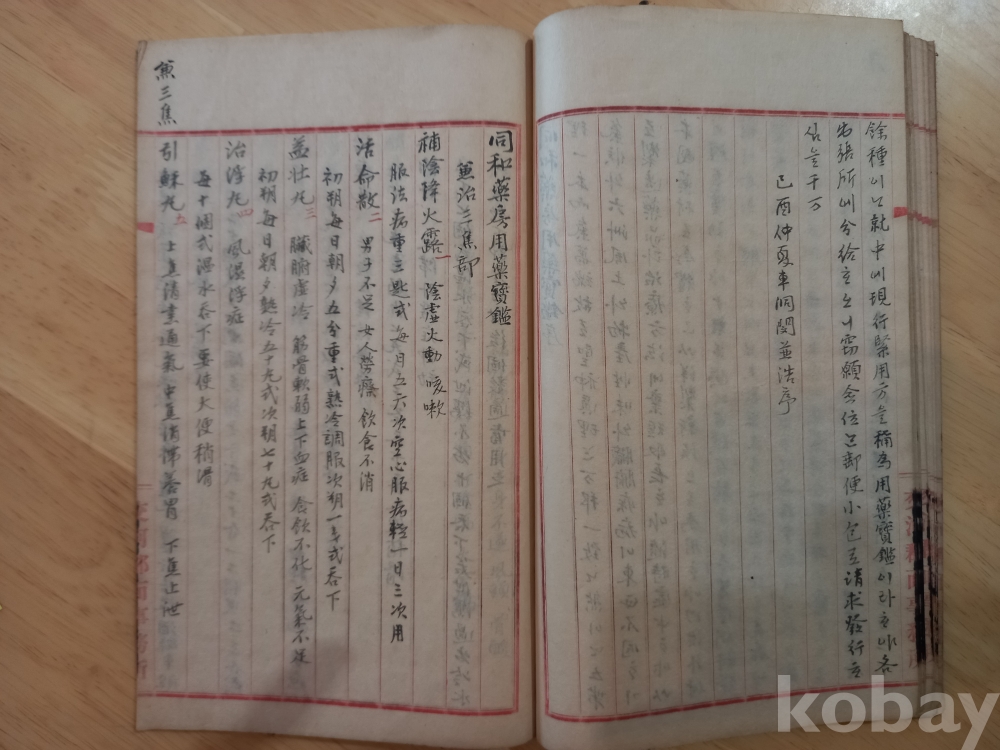 餘種이오就中에現行緊用方을稱為用藥寶鑑이라호야各
出張所에分給호오니 願僉位는郵便小包로請求發行호
심을千万
己酉仲夏東洞閔並浩序
同和藥房用藥寶鑑
兼治三焦部
補陰降火露 一 陰虛火動 咳嗽
服法病重三匙式 每日五六次空心服病輕一日三次用
活命散 二 男子不足 女人勞瘵 飮食不消
初朔每日朝夕五分重式熱冷調服次朔一戔式呑下
益壯丸 三 臟腑虛冷 筋骨軟弱上下血症 食飮不化 元氣不足
初朔每日朝夕熱冷五十丸式次朔七十丸式呑下
治浮丸 四 風濕浮症
每十個式溫水呑下要使大便稍滑
引蘇丸 五 上焦淸 通氣 中焦 胃 下焦止泄
兼三焦
kobay